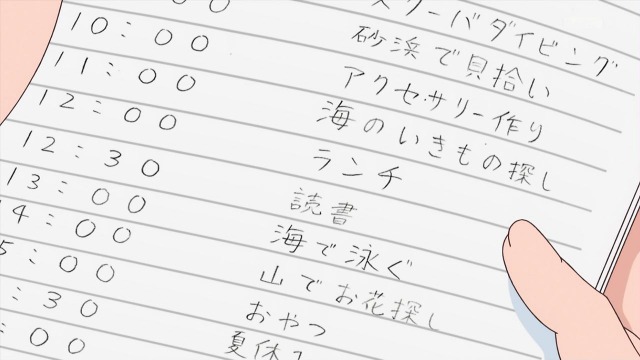 00 スクーバダイビング
10:00 砂浜で貝拾い
11:00 アクセサリー作り
12:00 海のいきもの探し
12:30 ランチ
13:00 読書
14:00 海で泳ぐ
5:00 山でお花探し
:30 おやつ
:00 夏休